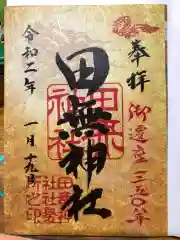 奉拝
御遷座三五〇年
田無神社
田無
神社
田無神
社社務
所之印
令和二年
一月十九日